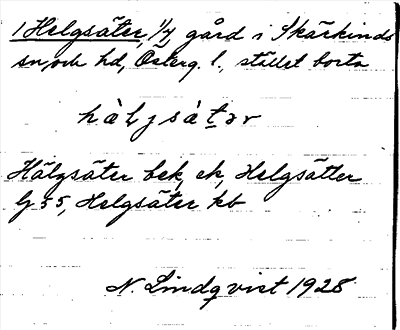 1 Helgsäter, 1/4 gård i Skärkinds
sn, och hd, Österg. l., stället borta
hàlgsátər
Hälgsäter bek, ek, Helgsätter
G 55, Helgsäter kb
N. Lindqvist 1928